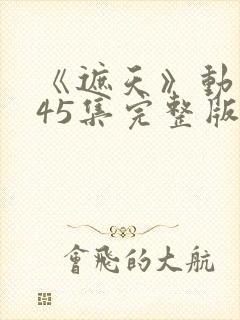 《遮天》動
45集完整版
會飛的大航